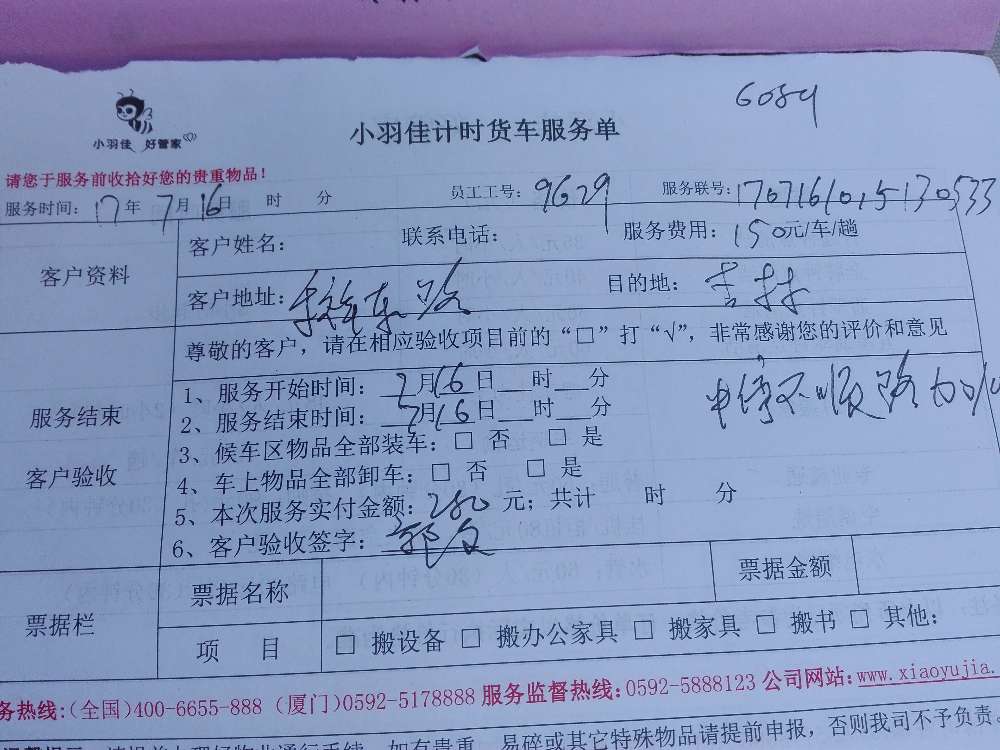 6089
小羽佳 好管家
小羽佳计时货车服务单
请您于服务前收拾好您的贵重物品！
服务时间：17年7月16日 时 分 员工工号：9629 服务联号：1707161015130533
客户资料
客户姓名： 联系电话： 服务费用：150元/车/趟
客户地址： 东路 目的地：吉林
尊敬的客户，请在相应验收项目前的“□”打“√”，非常感谢您的评价和意见
服务结束
客户验收
1、服务开始时间：7月16日 时 分
2、服务结束时间：7月16日 时 分
中停不顺路加
3、候车区物品全部装车：□ 否 □ 是
4、车上物品全部卸车：□ 否 □ 是
5、本次服务实付金额：280元；共计 时 分
6、客户验收签字：郭
票据栏
票据名称 票据金额
项 目 □ 搬设备 □ 搬办公家具 □ 搬家具 □ 搬书 □ 其他：
务热线:(全国)400-6655-888 (厦门)0592-5178888 服务监督热线:0592-5888123 公司网站:www.xiaoyujia.
易碎或其它特殊物品请提前申报，否则我司不予负责。